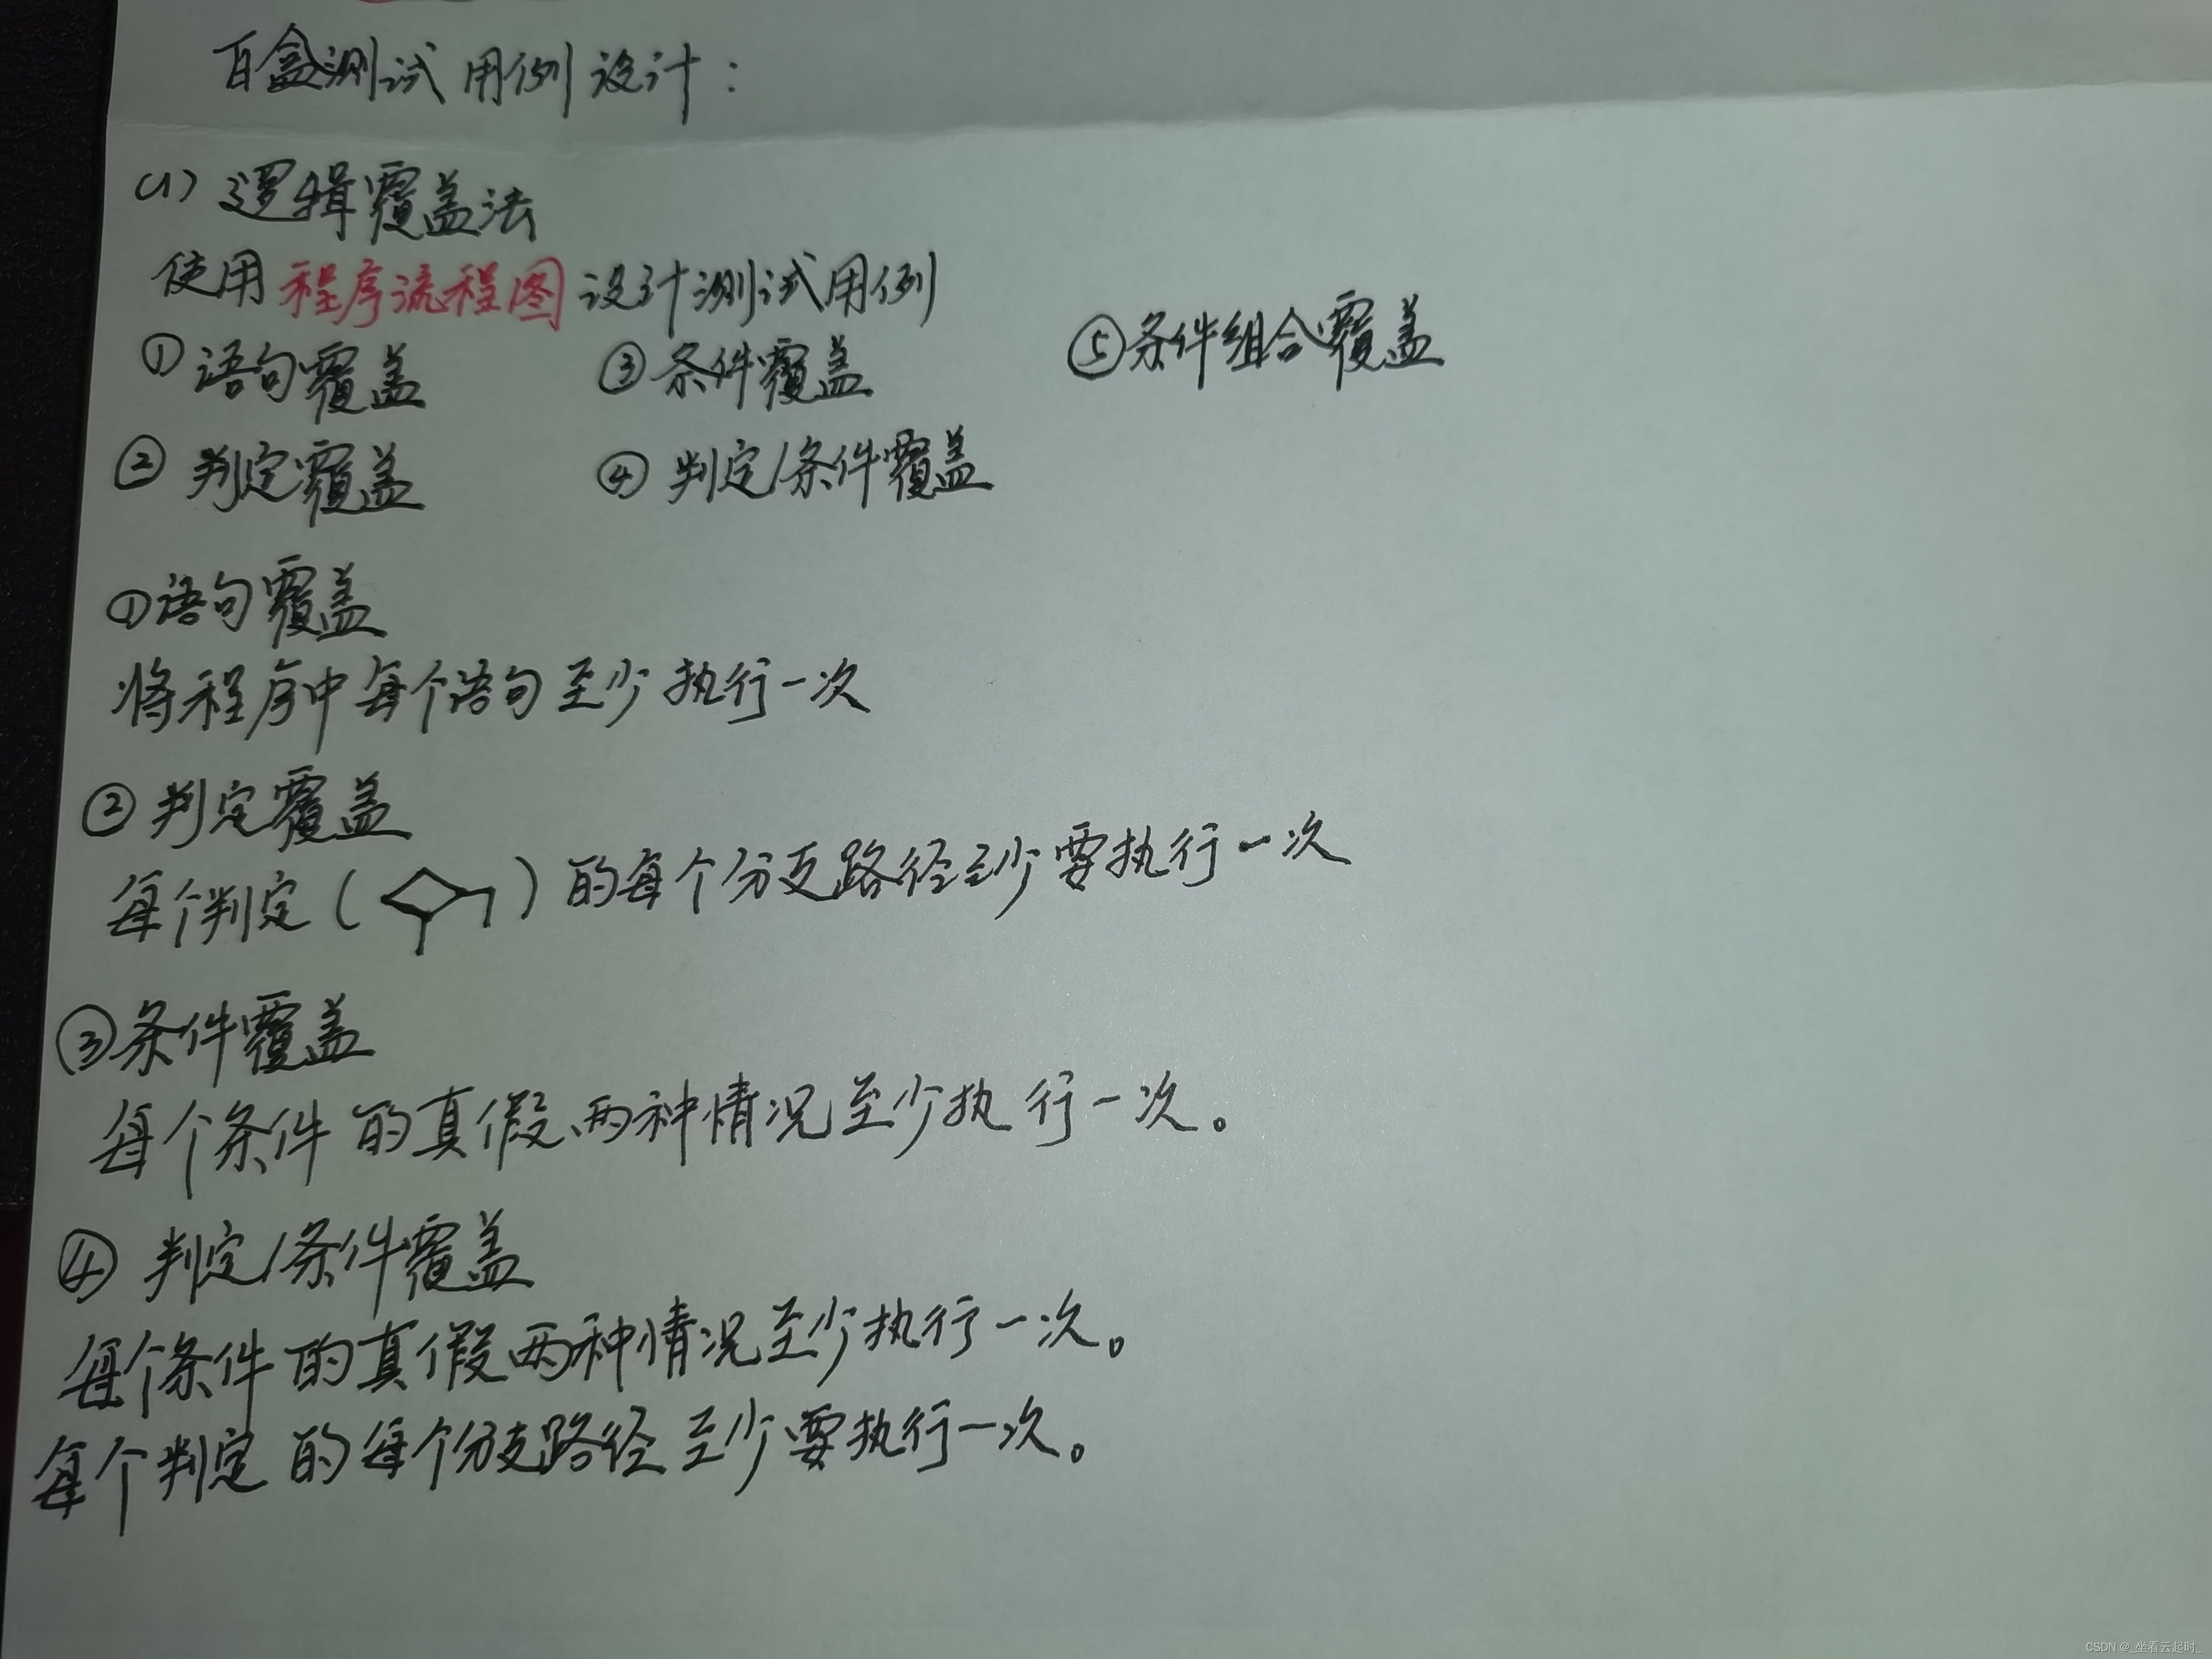 白盒测试用例设计：
(1) 逻辑覆盖法
使用程序流程图设计测试用例
① 语句覆盖 ③ 条件覆盖 ⑤条件组合覆盖
② 判定覆盖 ④ 判定/条件覆盖
①语句覆盖
将程序中每个语句至少执行一次
② 判定覆盖
每个判定（ ）的每个分支路径至少要执行一次
③条件覆盖
每个条件的真假两种情况至少执行一次。
④ 判定/条件覆盖
每个条件的真假两种情况至少执行一次。
每个判定的每个分支路径至少要执行一次。
CSDN @_坐看云起时_